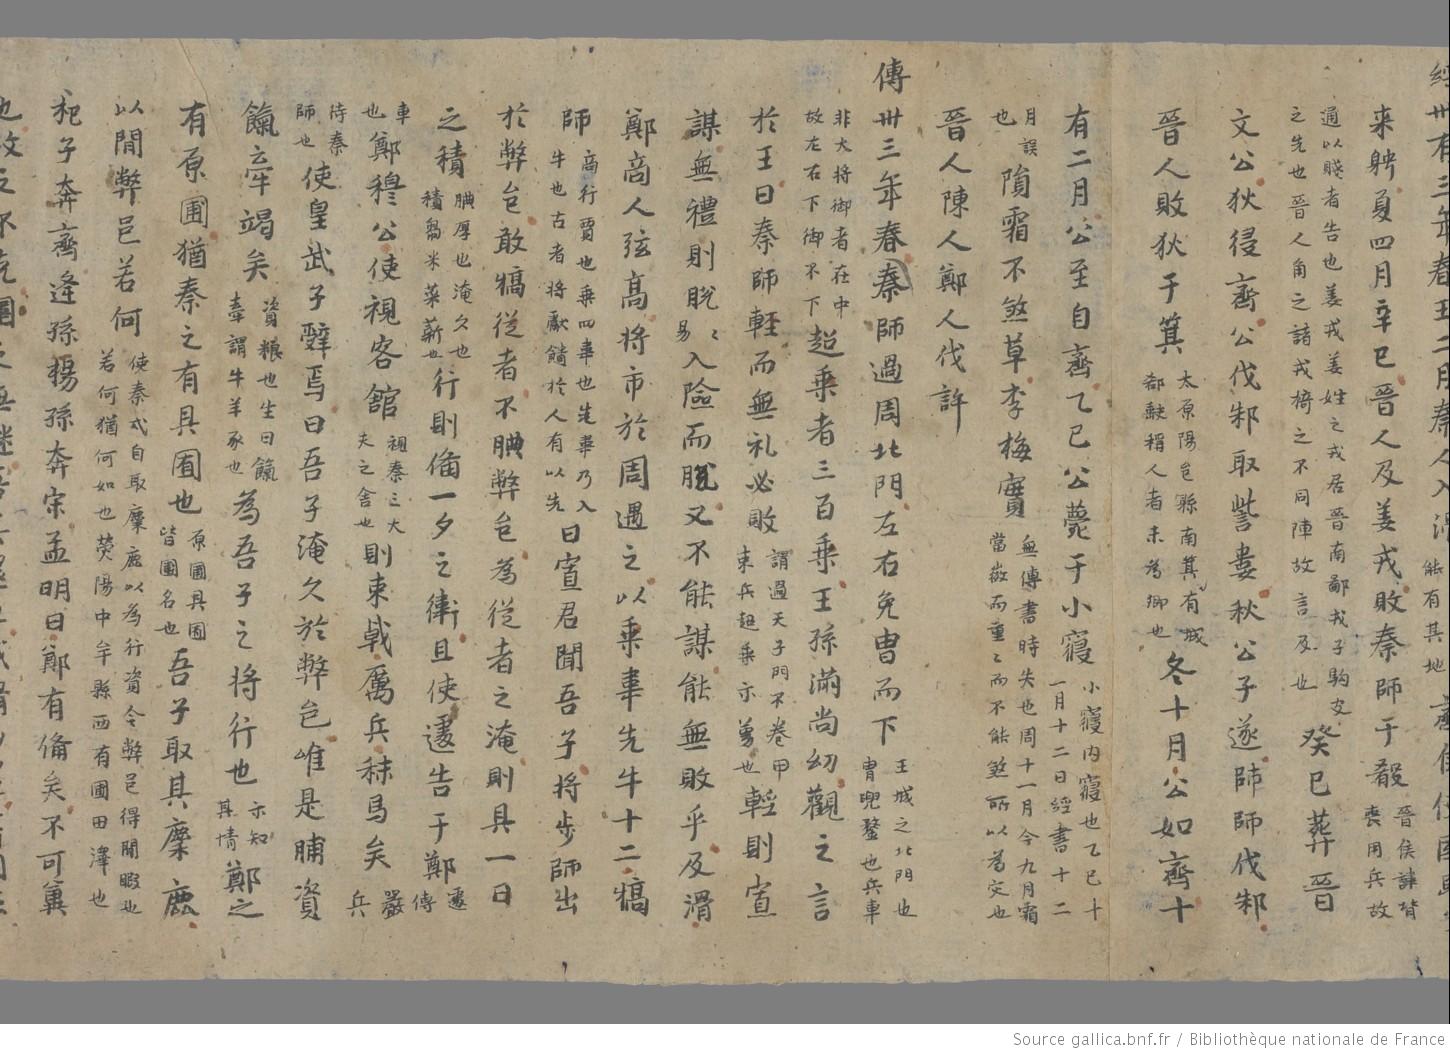 經卅有三年春王二月秦人入滑能有其地
來娉夏四月辛巳晉人及姜戎敗秦師于殽晉侯諱背喪用兵故
通以賤者告也姜戎姜姓之戎居晉南鄙戎子駒支之先也晉人角之諸戎掎之不同陣故言及也癸巳葬晉
文公狄侵齊公伐邾取訾婁秋公子遂師師伐邾
晉人敗狄于箕太原陽邑縣南箕有城郤缺稱人者未為卿也冬十月公如齊十
有二月公至自齊乙巳公薨于小寢小寢內寢也乙巳十一月十二日經書十二
月誤也隕霜不煞草李梅實無傳書時失也周十一月今九月霜當微而重〻而不能煞所以為灾也
晉人陳人鄭人伐許
傳卅三年春秦師過周北門左右免冑而下王城之北門也冑兜鍪也兵車
非大將御者在中故左右下御不下超乘者三百乘王孫滿尚幼觀之言
於王曰秦師輕而無礼必敗謂過天子門不卷甲束兵超乘示勇也輕則寡
謀無禮則脫〻易入險而脫又不能謀能無敗乎及滑
鄭商人弦高將市於周遇之以乘韋先牛十二犒
師商行賈也乘四韋也先韋乃入牛也古者將獻饋於人有以先曰寡君聞吾子將步師出
於弊邑敢犒從者不腆弊邑為從者之淹則具一日
之積腆厚也淹久也積芻米菜薪也行則俻一夕之衛且使遽告于鄭遽傳
車也鄭穆公使視客館視秦三大夫之舍也則束載厲兵秣馬矣嚴兵
待秦師也使皇武子辭焉曰吾子淹久於弊邑唯是脯資
餼牽竭矣資粮也生曰餼牽謂牛羊豕也為吾子之將行也示知其情鄭之
有原圃猶秦之有具囿也原圃具囿皆囿名也吾子取其麋鹿
以閒弊邑若何使秦戍自取麋鹿以為行資令弊邑得閒暇也若何猶何如也熒陽中牟縣西有圃田澤也
杞子奔齊逢孫楊孫奔宋孟明曰鄭有俻矣不可冀
也攻之不克圍之無継吾其還也滅滑